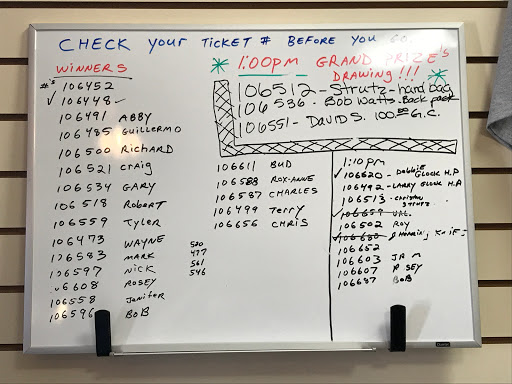 CHECK YOUR TICKET # BEFORE YOU GO.
WINNERS
#'s 106452
✓ 106448 -
106491 ABBY
106485 Guillermo
106500 Richard
106521 Craig
106534 GARY
106518 Robert
106559 Tyler
106473 WAYNE
106583 MARK
106597 NICK
06608 ROSEY
106558 Janifer
106596 BOB
520
477
561
546
* 1:00pm GRAND PRIZE'S
DRAWING!!! *
106512 - Strutz - hand bag
106536 - Bob Watts - Back pack
106551 - DAVID S. 100.00 G.C.
106611 BUD
106588 ROX-ANNE
106587 CHARLES
106499 Terry
106656 CHRIS
1:10pm
✓ 106620 - Debbie GLOCK H.P
106492 - LARRY GLOCK H.P
106513 - Christian STRUTZ
✓ 106659 VAL.
106502 ROY
✓ 106680
106652
106603
106607
106687 BOB